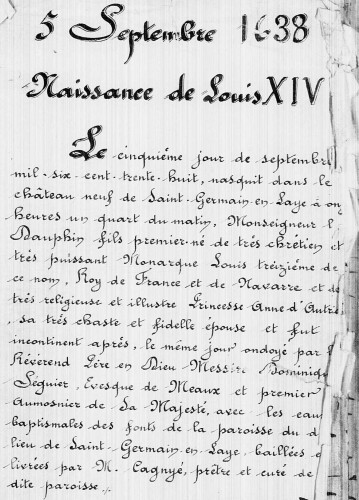 5 Septembre 1638
Naissance de Louis XIV
Le cinquième jour de septembre
mil-six-cent-trente-huit, nasquit dans le
château neuf de Saint-Germain-en-Laye à on
heures un quart du matin, Monseigneur l
Dauphin fils premier-né de très chrétien et
très puissant Monarque Louis treizième de
ce nom, Roy de France et de Navarre et de
très religieuse et illustre Princesse Anne d'Autri
, sa très chaste et fidelle épouse et fut
incontinent après, le même jour ondoyé par l
Révérend Père en Dieu Messire Dominiqu
Séguier, Evesque de Meaux et premier
Aumosnier de Sa Majesté, avec les eau
baptismales des fonts de la paroisse du d
lieu de Saint-Germain-en-Laye, baillées e
livrées par M. Cagnyé, prêtre et curé de
dite paroisse.